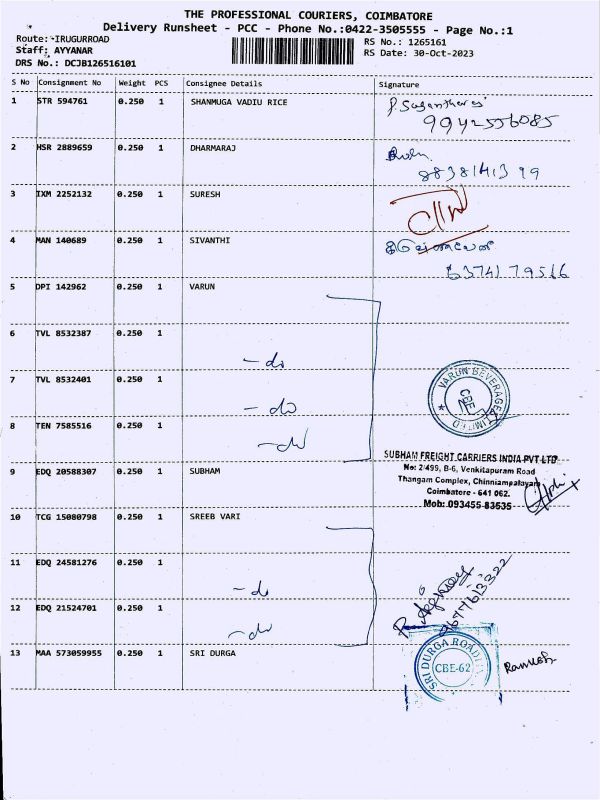 THE PROFESSIONAL COURIERS, COIMBATORE
Delivery Runsheet - PCC - Phone No.:0422-3505555 - Page No.:1
Route: -IRUGURROAD
RS No.: 1265161
Staff: AYYANAR
RS Date: 30-Oct-2023
DRS No.: DCJB126516101
S No Consignment No Weight PCS Consignee Details Signature
1 STR 594761 0.250 1 SHANMUGA VADIU RICE
9942556085
2 HSR 2889659 0.250 1 DHARMARAJ
8838141399
3 IXM 2252132 0.250 1 SURESH
4 MAN 140689 0.250 1 SIVANTHI
6374179516
5 DPI 142962 0.250 1 VARUN
6 TVL 8532387 0.250 1
-do
7 TVL 8532401 0.250 1
-do
8 TEN 7585516 0.250 1
-do
VARUN BEVERAGES LIMITED
CBE
SUBHAM FREIGHT CARRIERS INDIA PVT LTD
No: 2/499, B-6, Venkitapuram Road
Thangam Complex, Chinniampalayam
Coimbatore - 641 062.
Mob: 093455 83535
9 EDQ 20588307 0.250 1 SUBHAM
10 TCG 15080798 0.250 1 SREEB VARI
11 EDQ 24581276 0.250 1
-do
12 EDQ 21524701 0.250 1
-do
9677613322
13 MAA 573059955 0.250 1 SRI DURGA
SRI DURGA ROAD
CBE-62
Ramesh